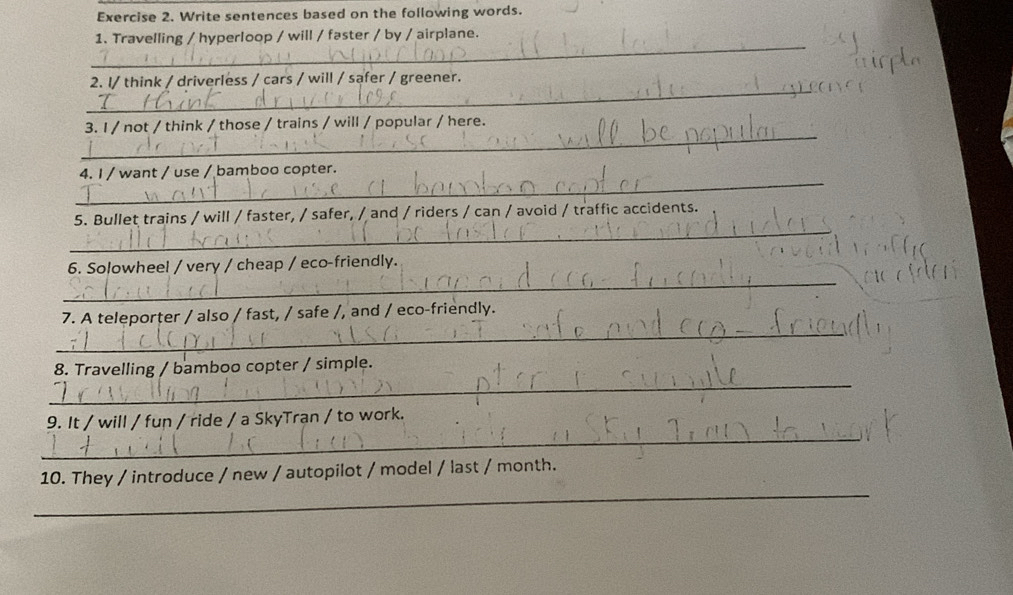 Exercise 2. Write sentences based on the following words.
1. Travelling / hyperloop / will / faster / by / airplane.
by hyperloop will be by
airpla
2. I/ think / driverless / cars / will / safer / greener.
I think driverless greener
3. I / not / think / those / trains / will / popular / here.
I do not think those trains will be popular
4. I / want / use / bamboo copter.
I want to use a bamboo copter
5. Bullet trains / will / faster, / safer, / and / riders / can / avoid / traffic accidents.
Bullet trains will be faster, safer and riders
avoid traffic
6. Solowheel / very / cheap / eco-friendly.
accident
Solowheel very cheap and eco-friendly
7. A teleporter / also / fast, / safe /, and / eco-friendly.
teleporter also safe and eco-friendly
8. Travelling / bamboo copter / simple.
Travelling simple
9. It / will / fun / ride / a SkyTran / to work.
It will be fun ride a SkyTran to work
10. They / introduce / new / autopilot / model / last / month.